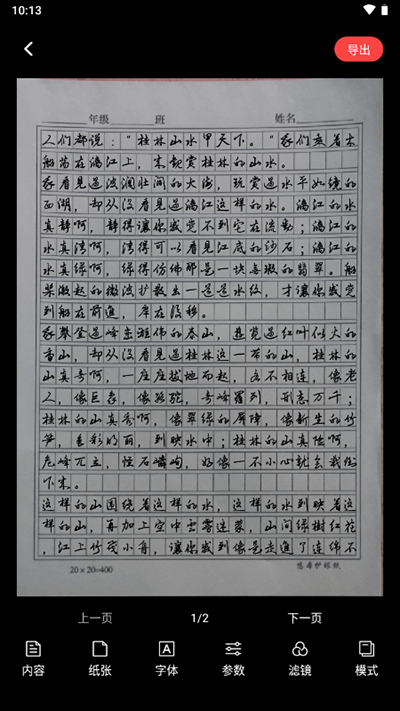 10:13
导出
年级 班 姓名
人们都说："桂林山水甲天下。"我们乘着木
船荡在漓江上，来观赏桂林的山水。
我看见过波澜壮阔的大海，玩赏过水平如镜的
西湖，却从没看见过漓江这样的水。漓江的水
真静啊，静得让你感觉不到它在流动；漓江的
水真清啊，清得可以看见江底的沙石；漓江的
水真绿啊，绿得仿佛那是一块无瑕的翡翠。船
桨激起的微波扩散出一道道水纹，才让你感觉
到船在前進，岸在後移。
我攀登過峰峦雄伟的泰山，遊览過红叶似火的
香山，却从没看見過桂林這一带的山，桂林的
山真奇啊，一座座拔地而起，各不相连，像老
人，像巨象，像骆驼，奇峰罗列，形态万千；
桂林的山真秀啊，像翠绿的屏障，像新生的竹
笋，色彩明丽，倒映水中；桂林的山真险啊，
危峰兀立，怪石嶙峋，好像一不小心就会栽倒
下来。
这样的山围绕着这样的水，这样的水倒映着这
样的山，再加上空中雲雾迷蒙，山间绿樹红花
，江上竹筏小舟，讓你感到像是走進了连绵不
20×20=400 悠库护眼纸
上一页 1/2 下一页
内容 纸张 字体 参数 滤镜 模式